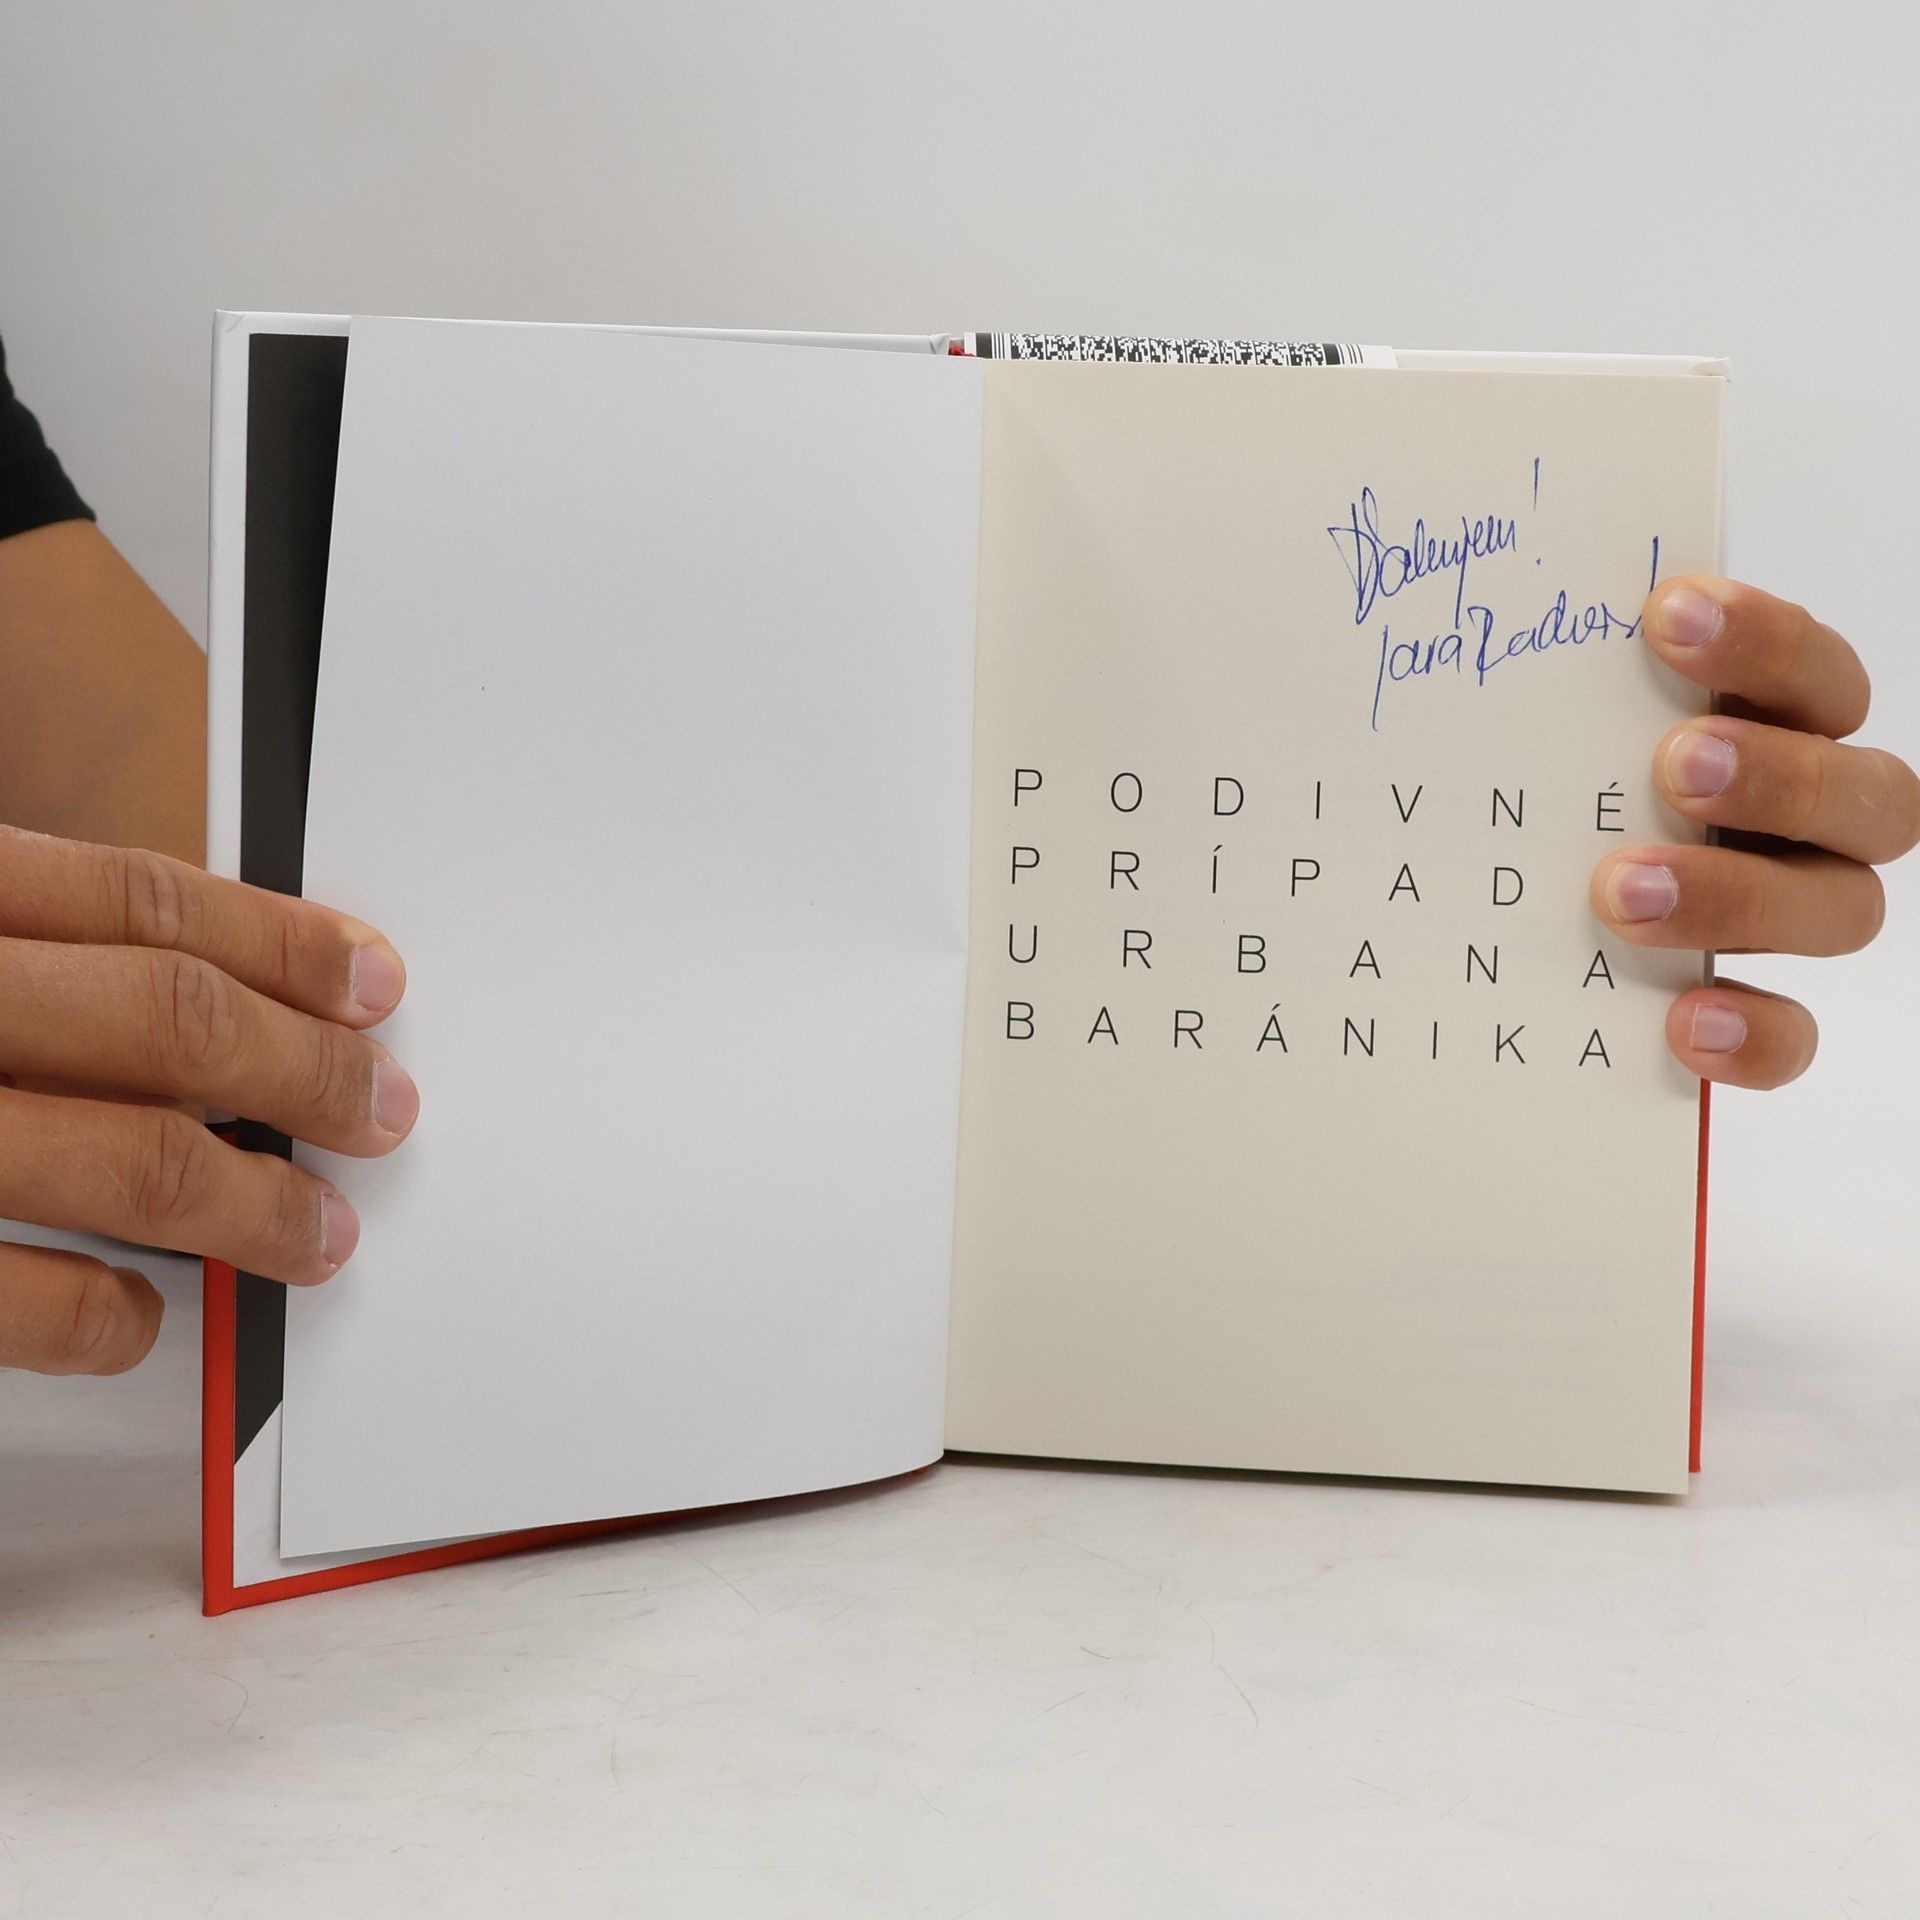 Ďakujem!
Jara Radvers
PODIVNÉ
PRÍPAD
URBANA
BARÁNIKA